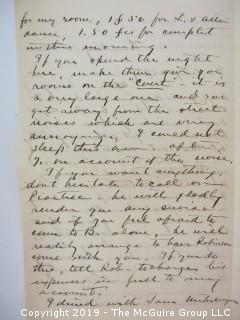 for my room, 1.50 for L. & atten
dance, 1.50 for
in this morning.
If you spend the night
here, make them give you
rooms on the "court" it is
a very large one and you
get away from the street
noises which are very
annoying. I could not
sleep this a.m. after
7. on account of the noise.
If you want anything,
don't hesitate to call on
he will gladly
render you any service
and if you feel afraid to
come to B. alone, he will
readily arrange to have Robinson
come with you. If you do
this, tell Rob. to charge his
expenses in full to my
account.
I dined with Sam
Copyright 2019 - www.EstateAuctionsInc.com